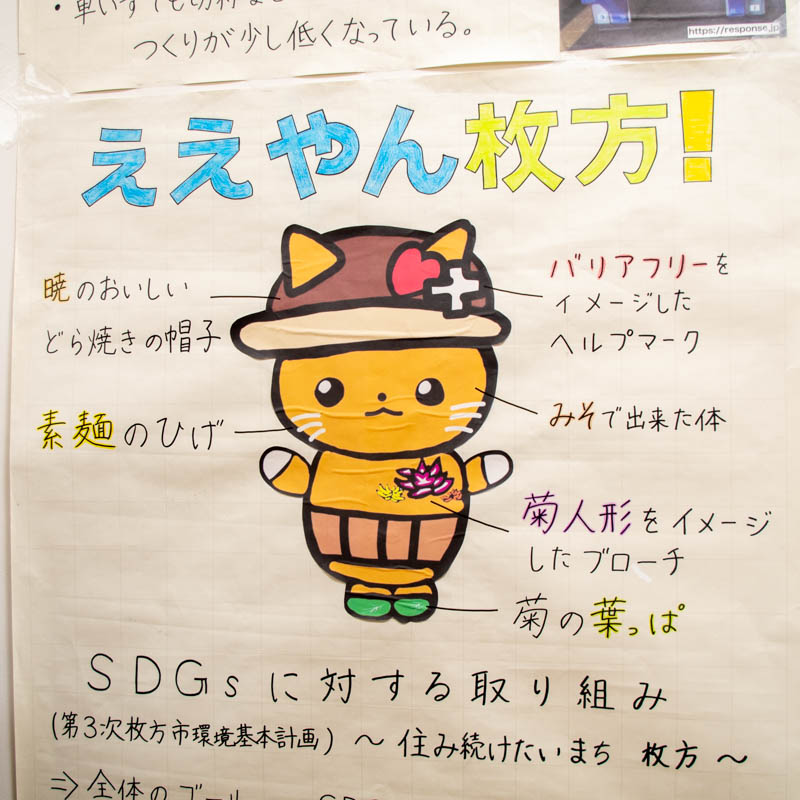 ・車いすでも
つくりが少し低くなっている。
https://response.jp
ええやん枚方!
暁のおいしい
どら焼きの帽子
バリアフリーを
イメージした
ヘルプマーク
素麺のひげ
みそで出来た体
菊人形をイメージ
したブローチ
菊の葉っぱ
SDGsに対する取り組み
(第3次枚方市環境基本計画) ～ 住み続けたいまち 枚方 ～
⇒ 全体のゴール